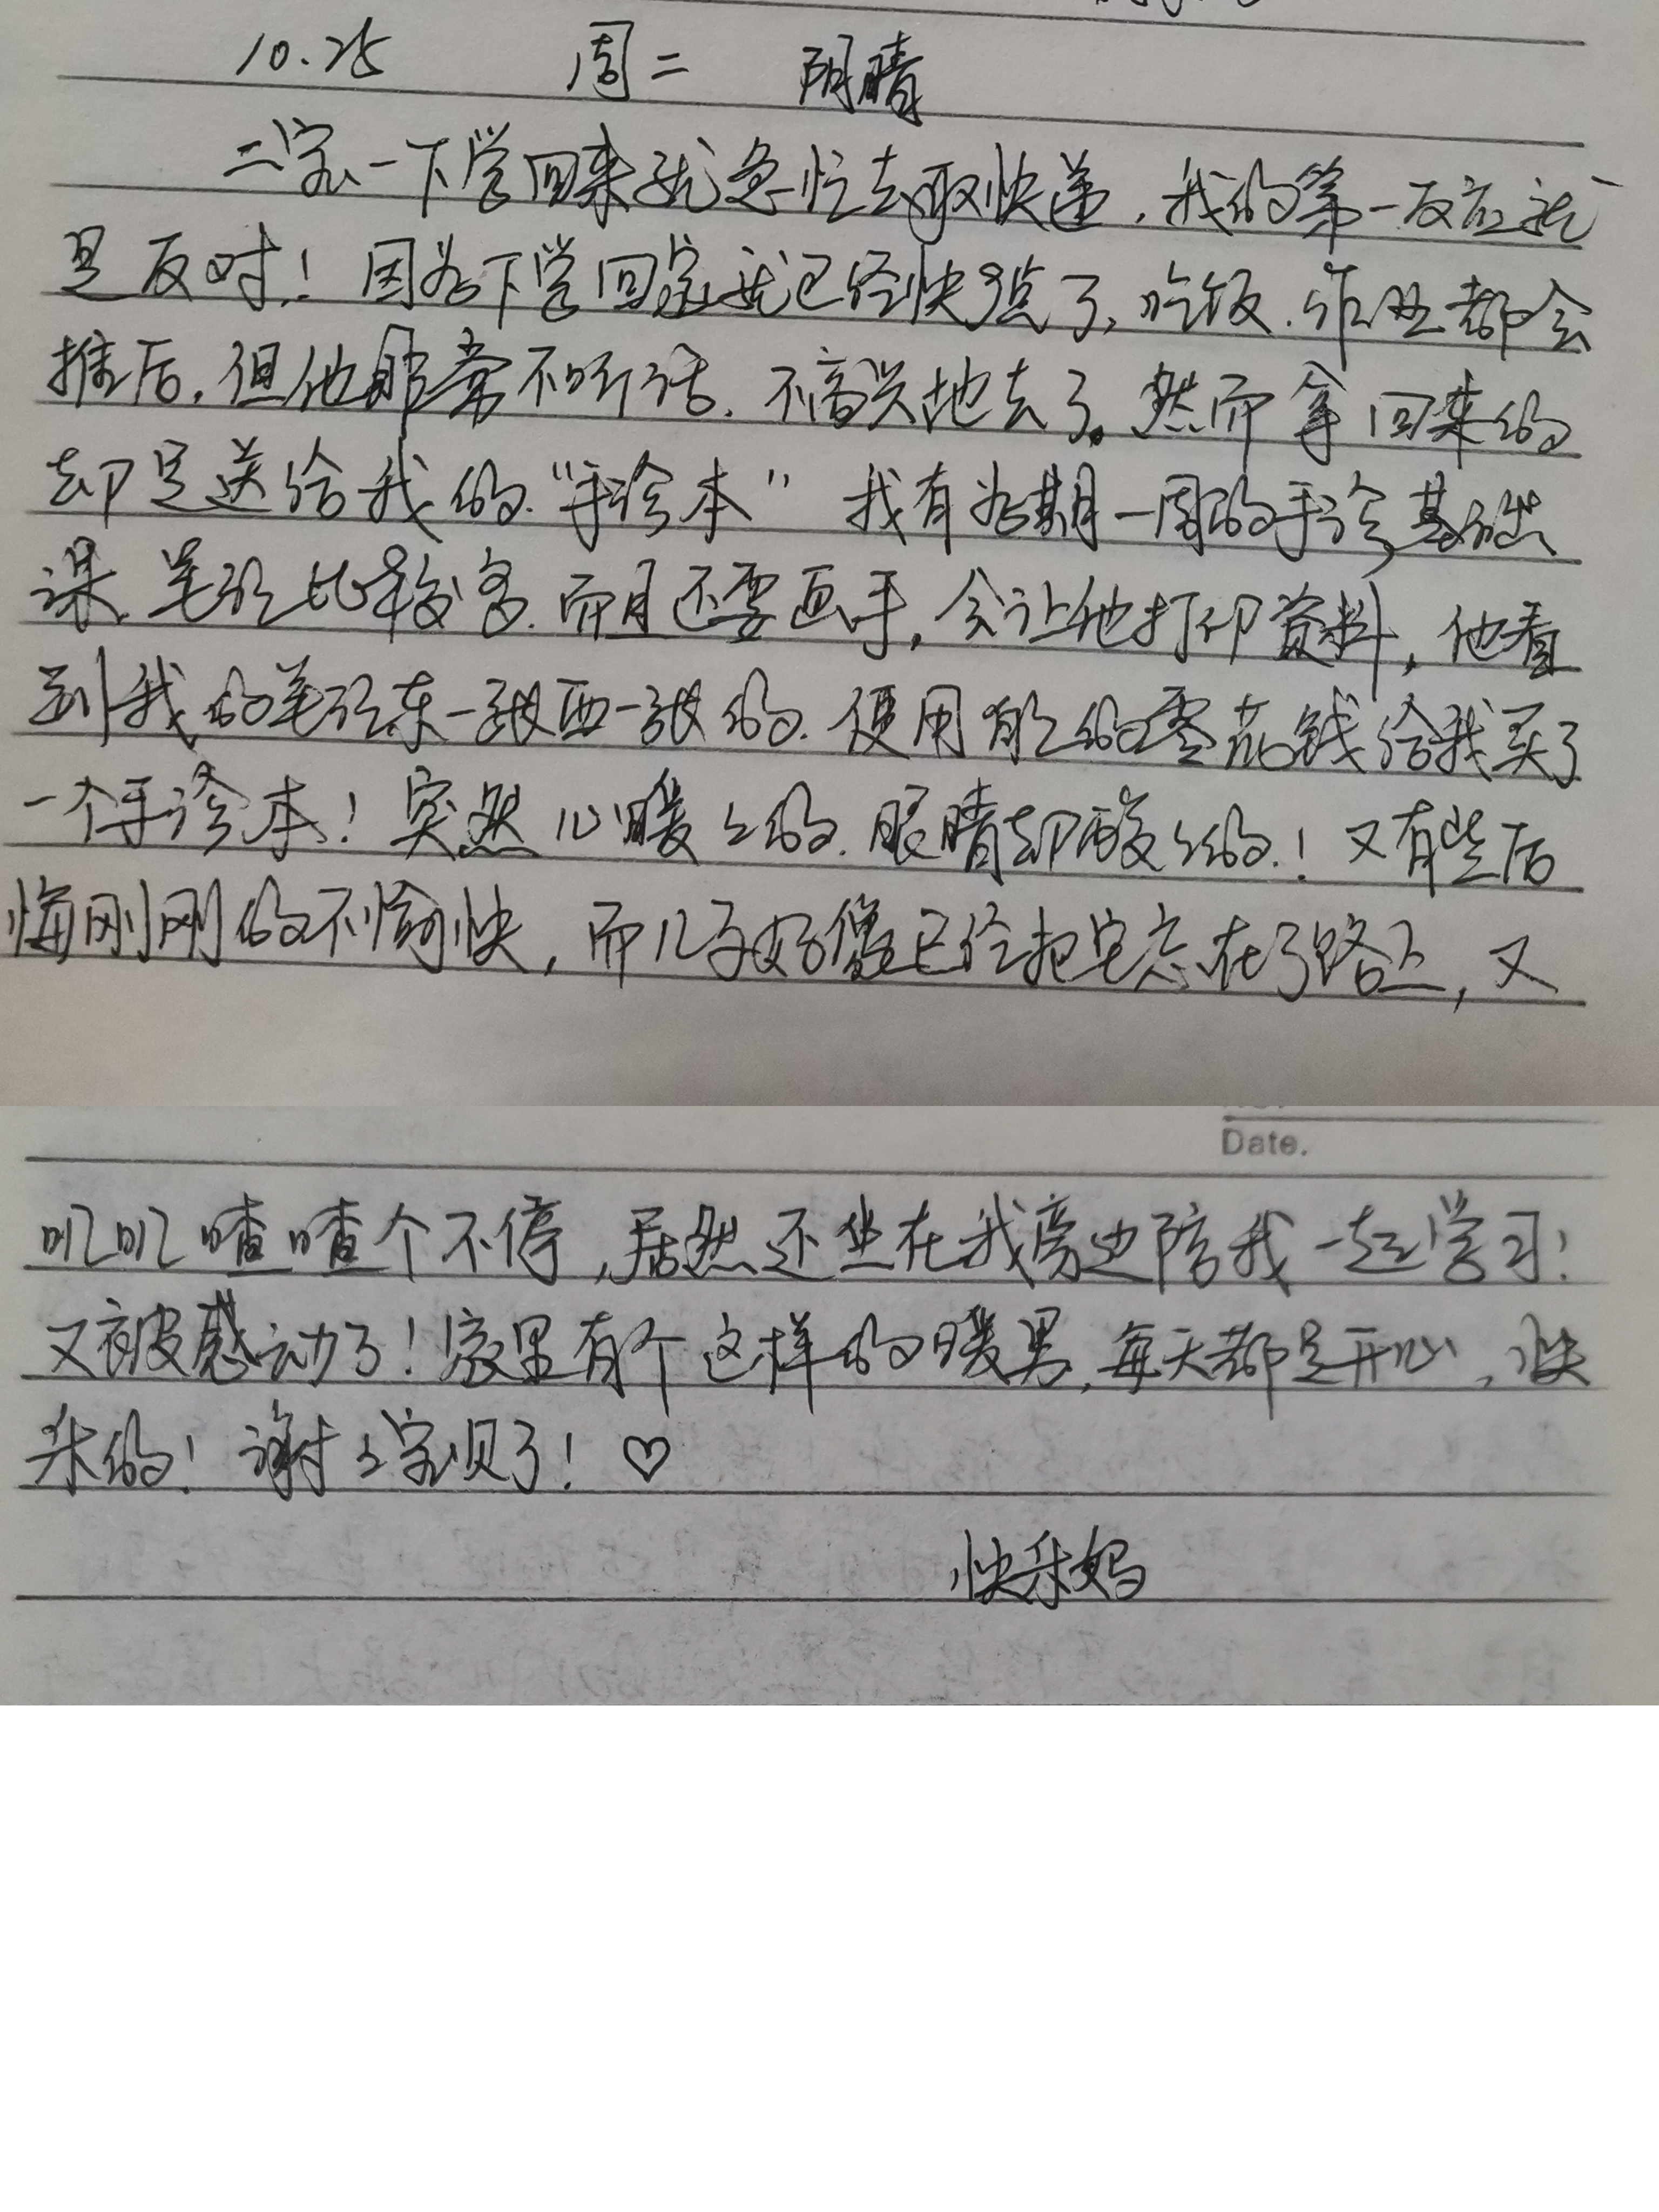 10.25 周二 阴晴
二宝一下学回来就急忙去取快递，我的第一反应就
是反对！因为下学回家就已经快7点了，吃饭、作业都会
推后，但他非常不听话，不高兴地去了。然而拿回来的
却是送给我的“手诊本”我有为期一周的手诊基础
课，笔记比较多，而且还要画手，会让他打印资料，他看
到我的笔记东一张西一张的，便用自己的零花钱给我买了
一个手诊本！突然心暖々的，眼睛却酸々的！又有些后
悔刚刚的不愉快，而儿子好像已经把它忘在了路上，又
Date.
叽叽喳喳个不停，居然还坐在我旁边陪我一起学习！
又被感动了！家里有个这样的暖男，每天都是开心、快
乐的！谢々宝贝了！♡
快乐妈